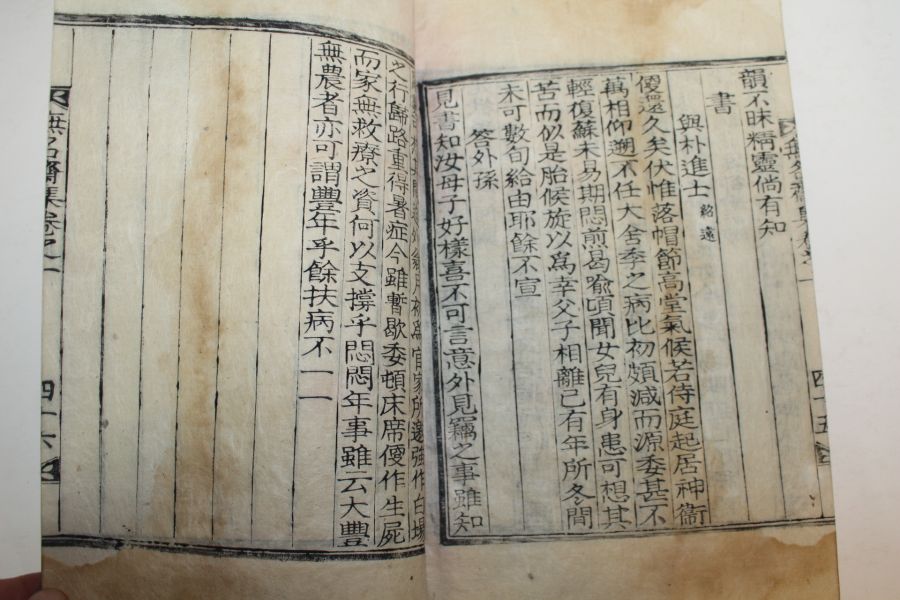 韻不昧精靈倘有知
書
與朴進士 紹遠
優遝久矣伏惟落帽節高堂氣候若侍庭起居神衛
萬相仰遡不任大舍季之病比初頗減而源委甚不
輕復蘇未易期悶煎曷喩頃聞女兒有身患可想其
苦而似是胎候旋以爲幸父子相離已有年所冬間
未可數旬給由耶餘不宣
答外孫
見書知汝母子好樣喜不可言意外見竊之事雖知
月初爲官家所邀強作白場
之行歸路重得暑症今雖暫歇委頓床席便作生屍
而家無救療之資何以支撐乎悶悶年事雖云大豐
無農者亦可謂豐年乎餘扶病不一一
無名齋集卷之一
四十五
無名齋集卷之一
四十六